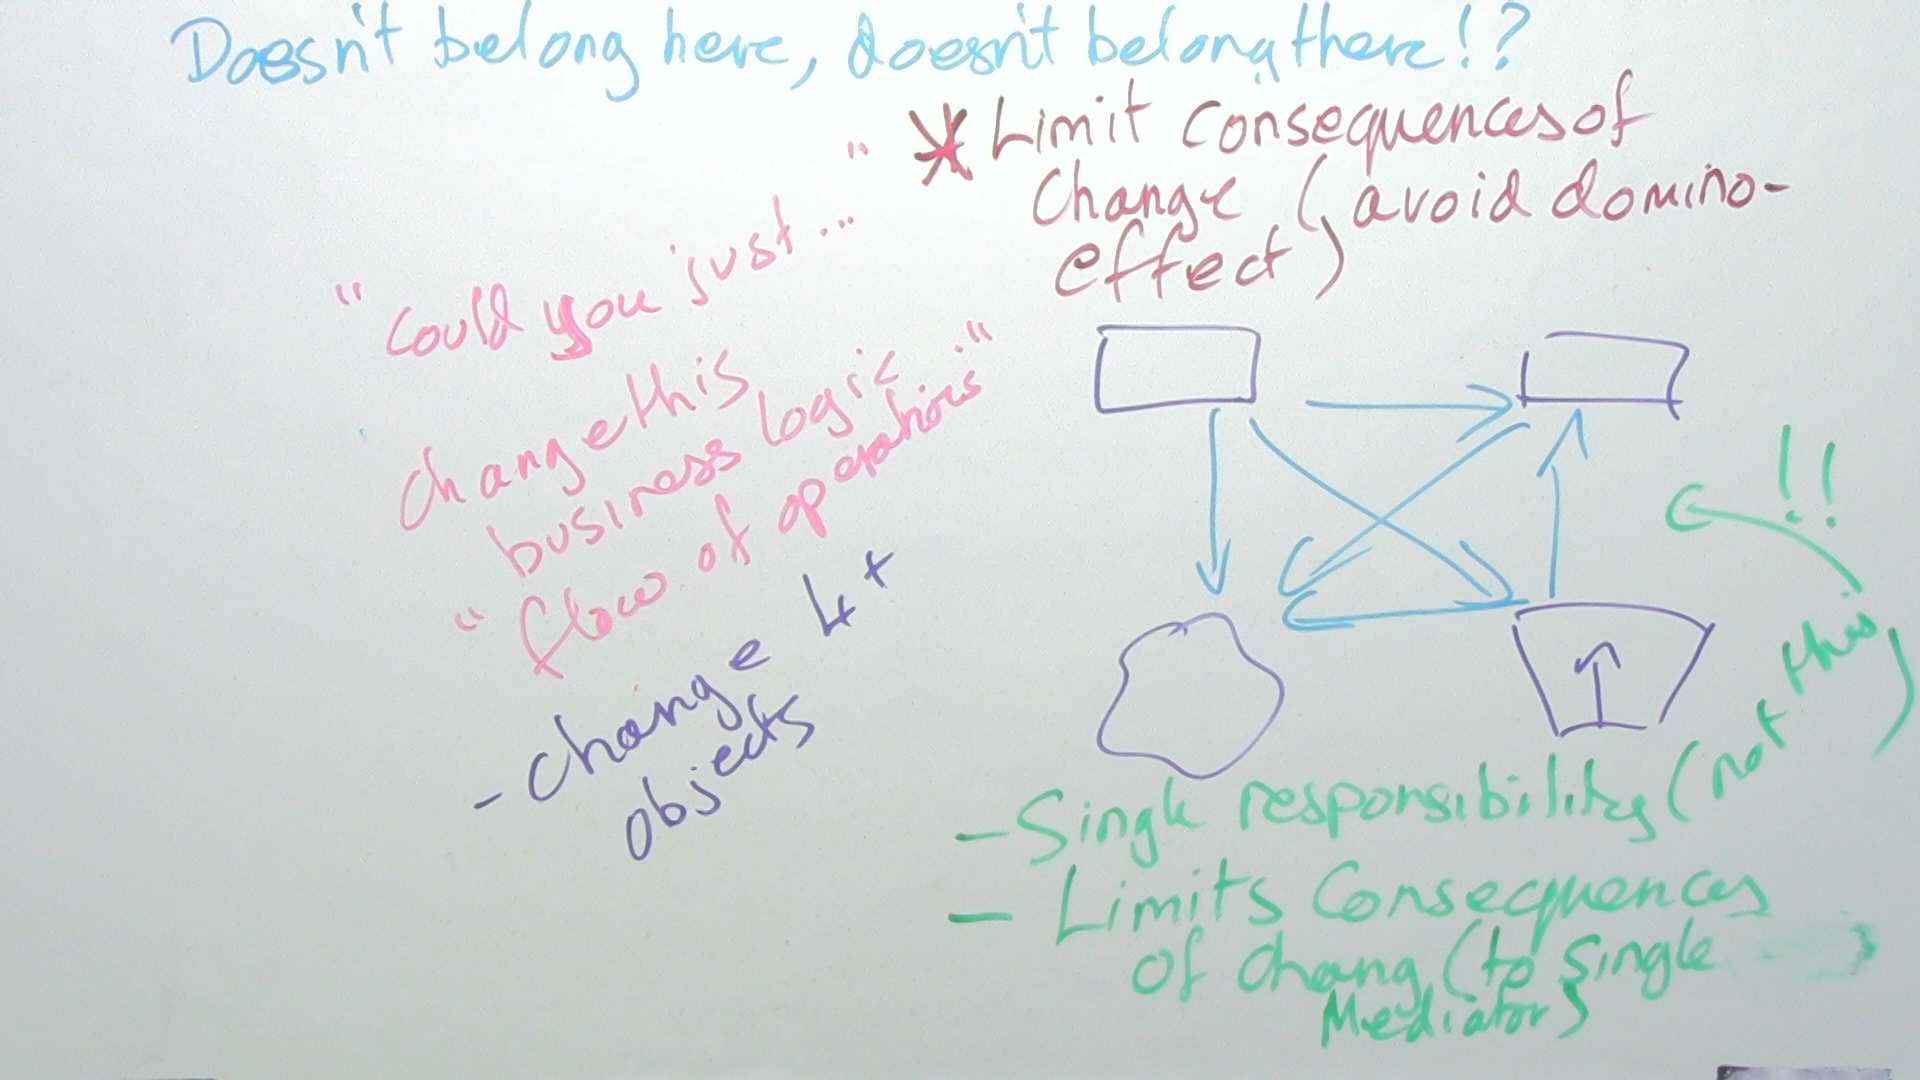 Doesn't belong here, doesn't belong there!?
* Limit consequences of
change (avoid domino-
effect)
"could you just..."
change this
business logic."
"flow of operations"
- change 4+
objects
!!
- Single responsibility (not this)
- Limits Consequences
of chang (to single
Mediator)